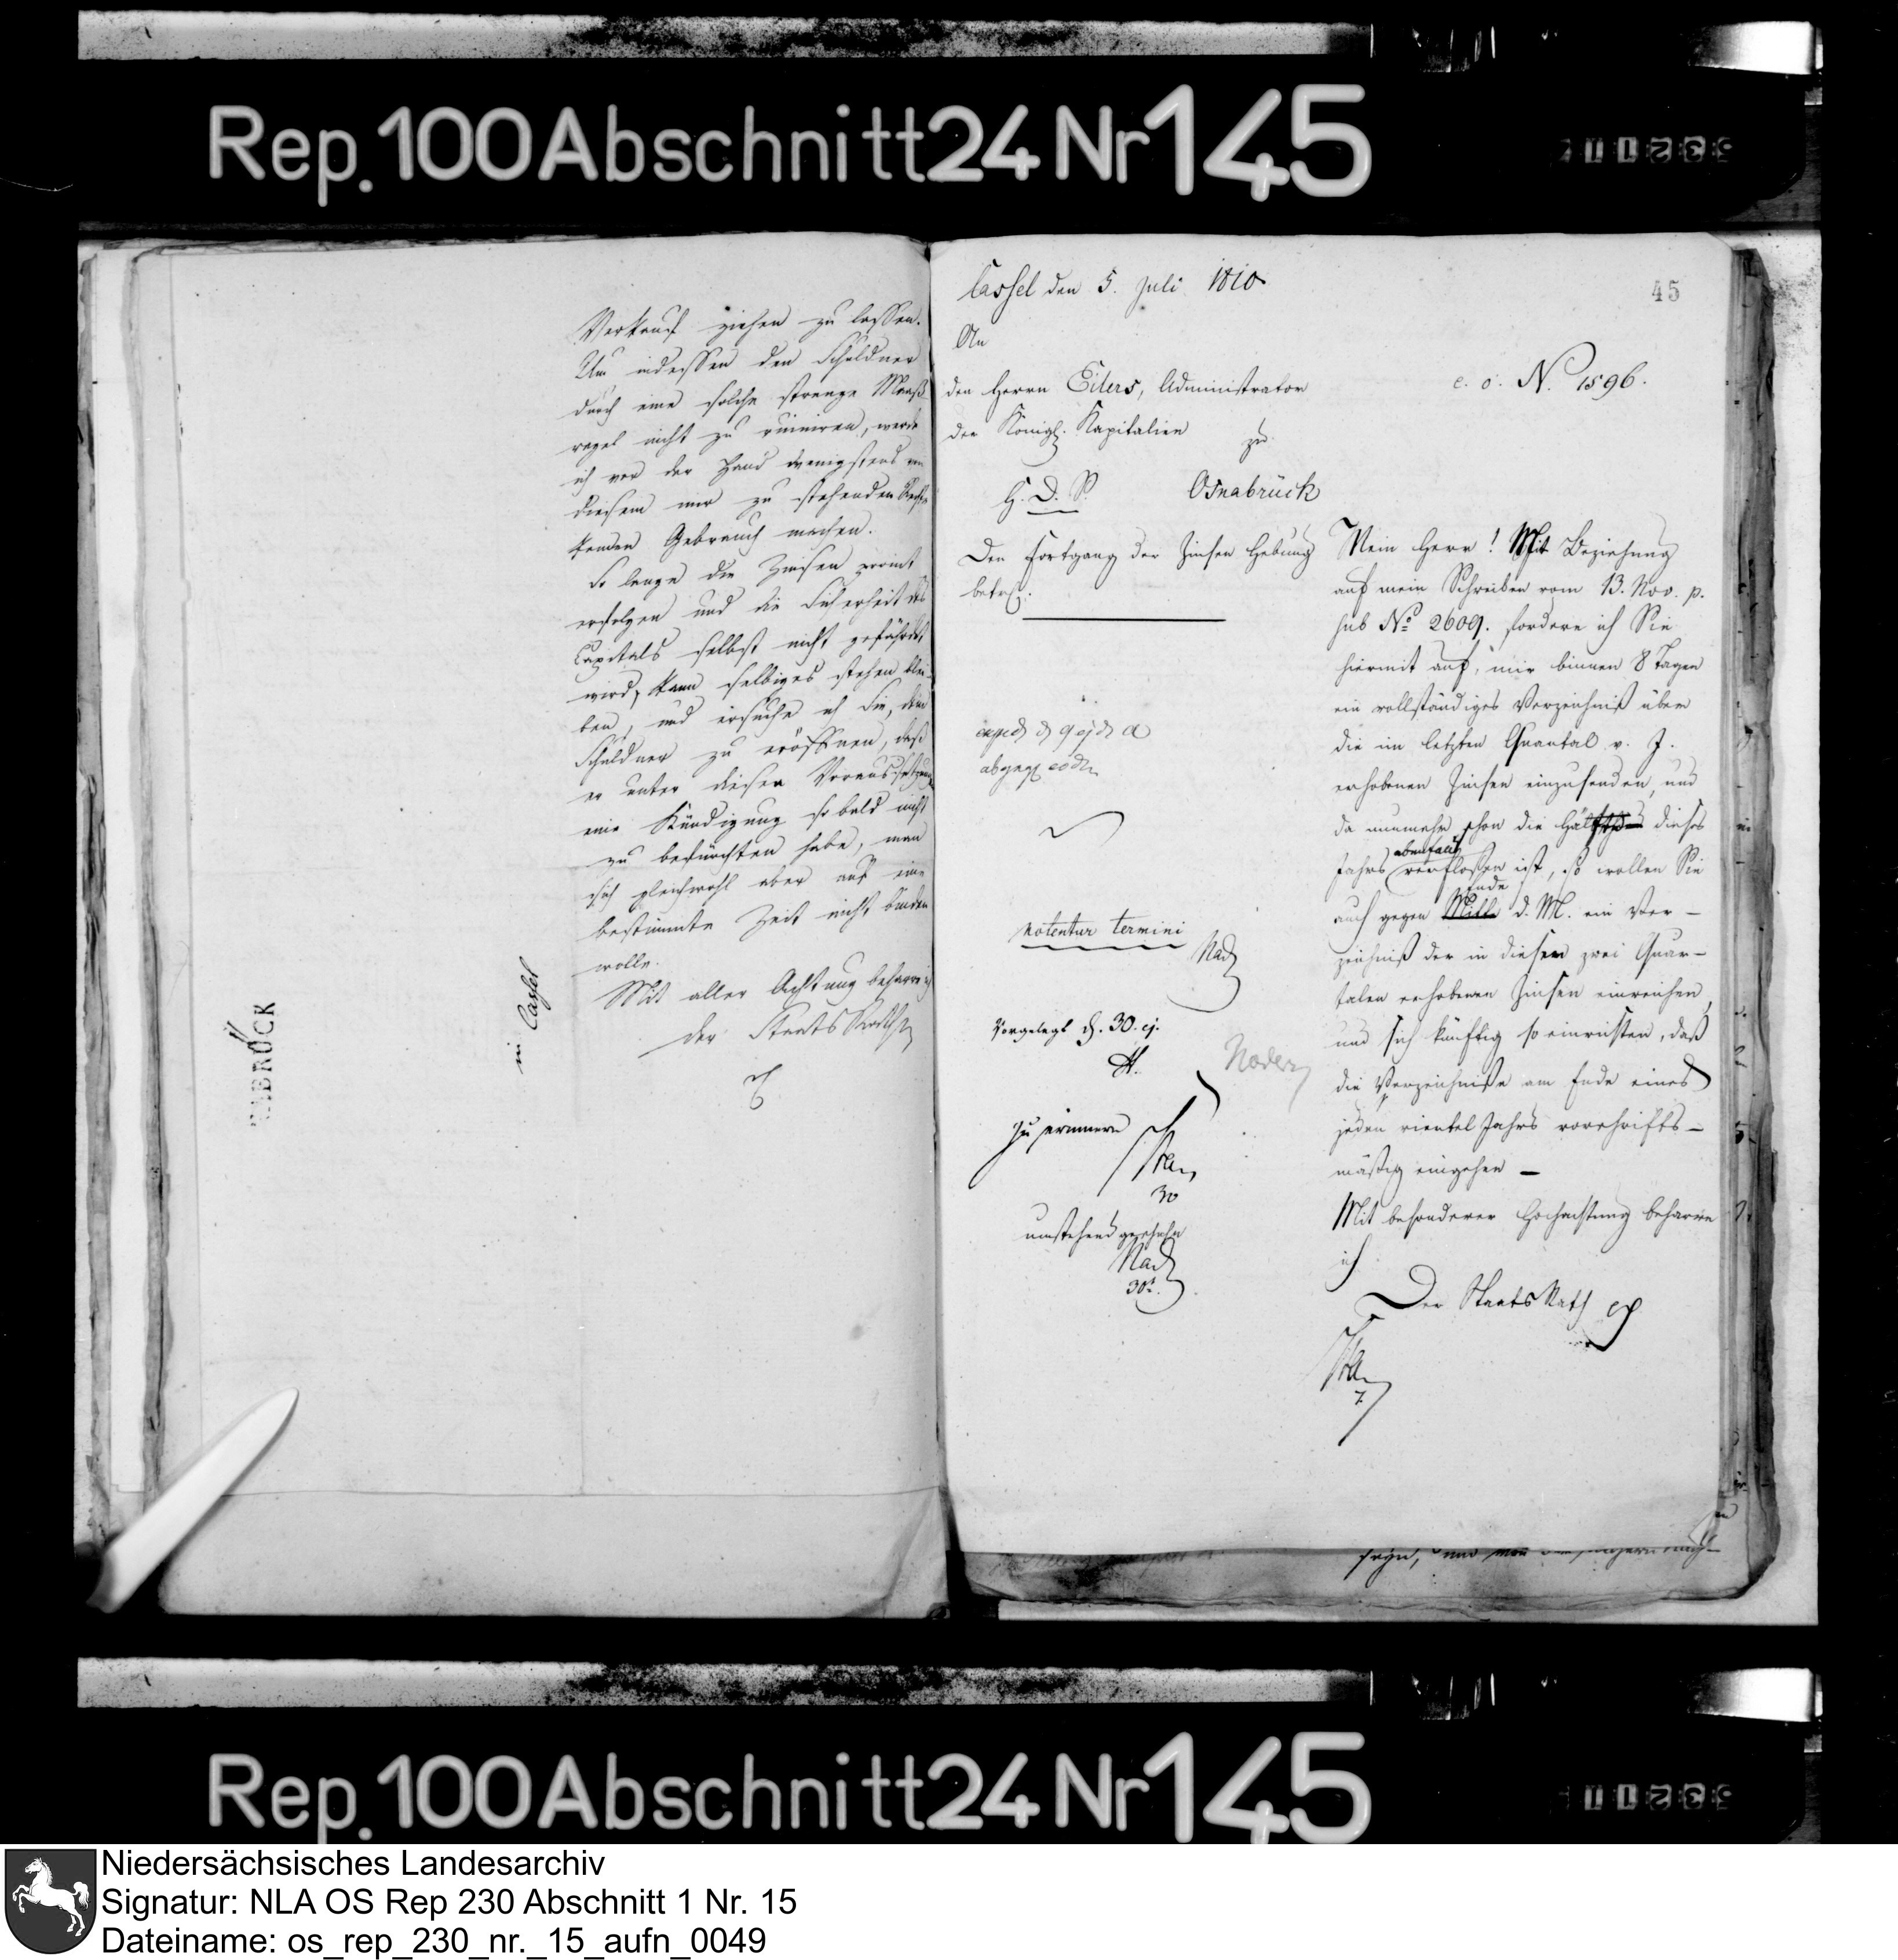 Rep. 100 Abschnitt 24 Nr 145
Verkauf ziehen zu lassen.
Um indessen den Schuldner
durch eine solche strenge Maaß
regel nicht zu ruiniren, werde
ich vor der Hand wenigstens von
diesem mir zu stehenden Rechte
keinen Gebrauch machen.
So lange die Zinsen prompt
erfolgen und die Sicherheit des
Capitals selbst nicht gefährdet
wird, kann selbiges stehen blei-
ben, und ersuche ich Sie, dem
Schuldner zu eröffnen, daß
er unter dieser Voraussetzung
eine Kündigung so bald nicht
zu befürchten habe, man
sich gleichwohl aber auf eine
bestimmte Zeit nicht binden
wolle.
Mit aller Achtung beharre ich
der Staats Rath
in Cassel
BRÜCK
45
Cassel den 5. Juli 1810
An
den Herrn Eilers, Administrator
der Königl. Kapitalien
zu
H. D. P. Osnabrück
e. o. N. 1596.
Den Fortgang der Zinsen Hebung
betr.
notentur termini
Vorgelegt d. 30. ej.
zu erinnern
30
umstehend geschehn
30t.
Mein Herr! Mit Beziehung
auf mein Schreiben vom 13. Nov. p.
sub No 2609. fordere ich Sie
hiermit auf, mir binnen 8 Tagen
ein vollständiges Verzeichniß über
die im letzten Quartal v. J.
erhobenen Zinsen einzusenden, und
da nunmehr schon die Hälfte dieses
Jahrs ebenfalls verflossen ist, so wollen Sie
auch gegen Mitte Ende d. M. ein Ver-
zeichniß der in diesen zwei Quar-
talen erhobenen Zinsen einreichen,
und sich künftig so einrichten, daß
die Verzeichnisse am Ende eines
jeden viertel Jahrs vorschrifts-
mäßig eingehen -
Mit besonderer Hochachtung beharre
ich
Der Staats Rath
7.
Rep. 100 Abschnitt 24 Nr 145
Niedersächsisches Landesarchiv
Signatur: NLA OS Rep 230 Abschnitt 1 Nr. 15
Dateiname: os_rep_230_nr._15_aufn_0049